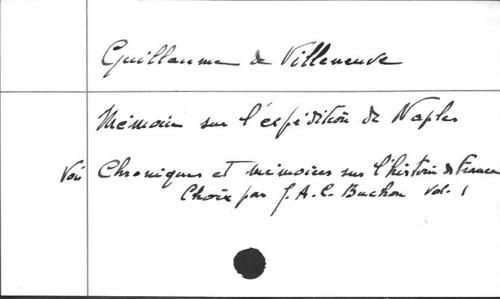 Guillaume de Villeneuve
Mémoire sur l'expédition de Naples
Voir Chroniques et mémoires sur l'histoire de France
Choix par J. A. C. Buchon vol. 1